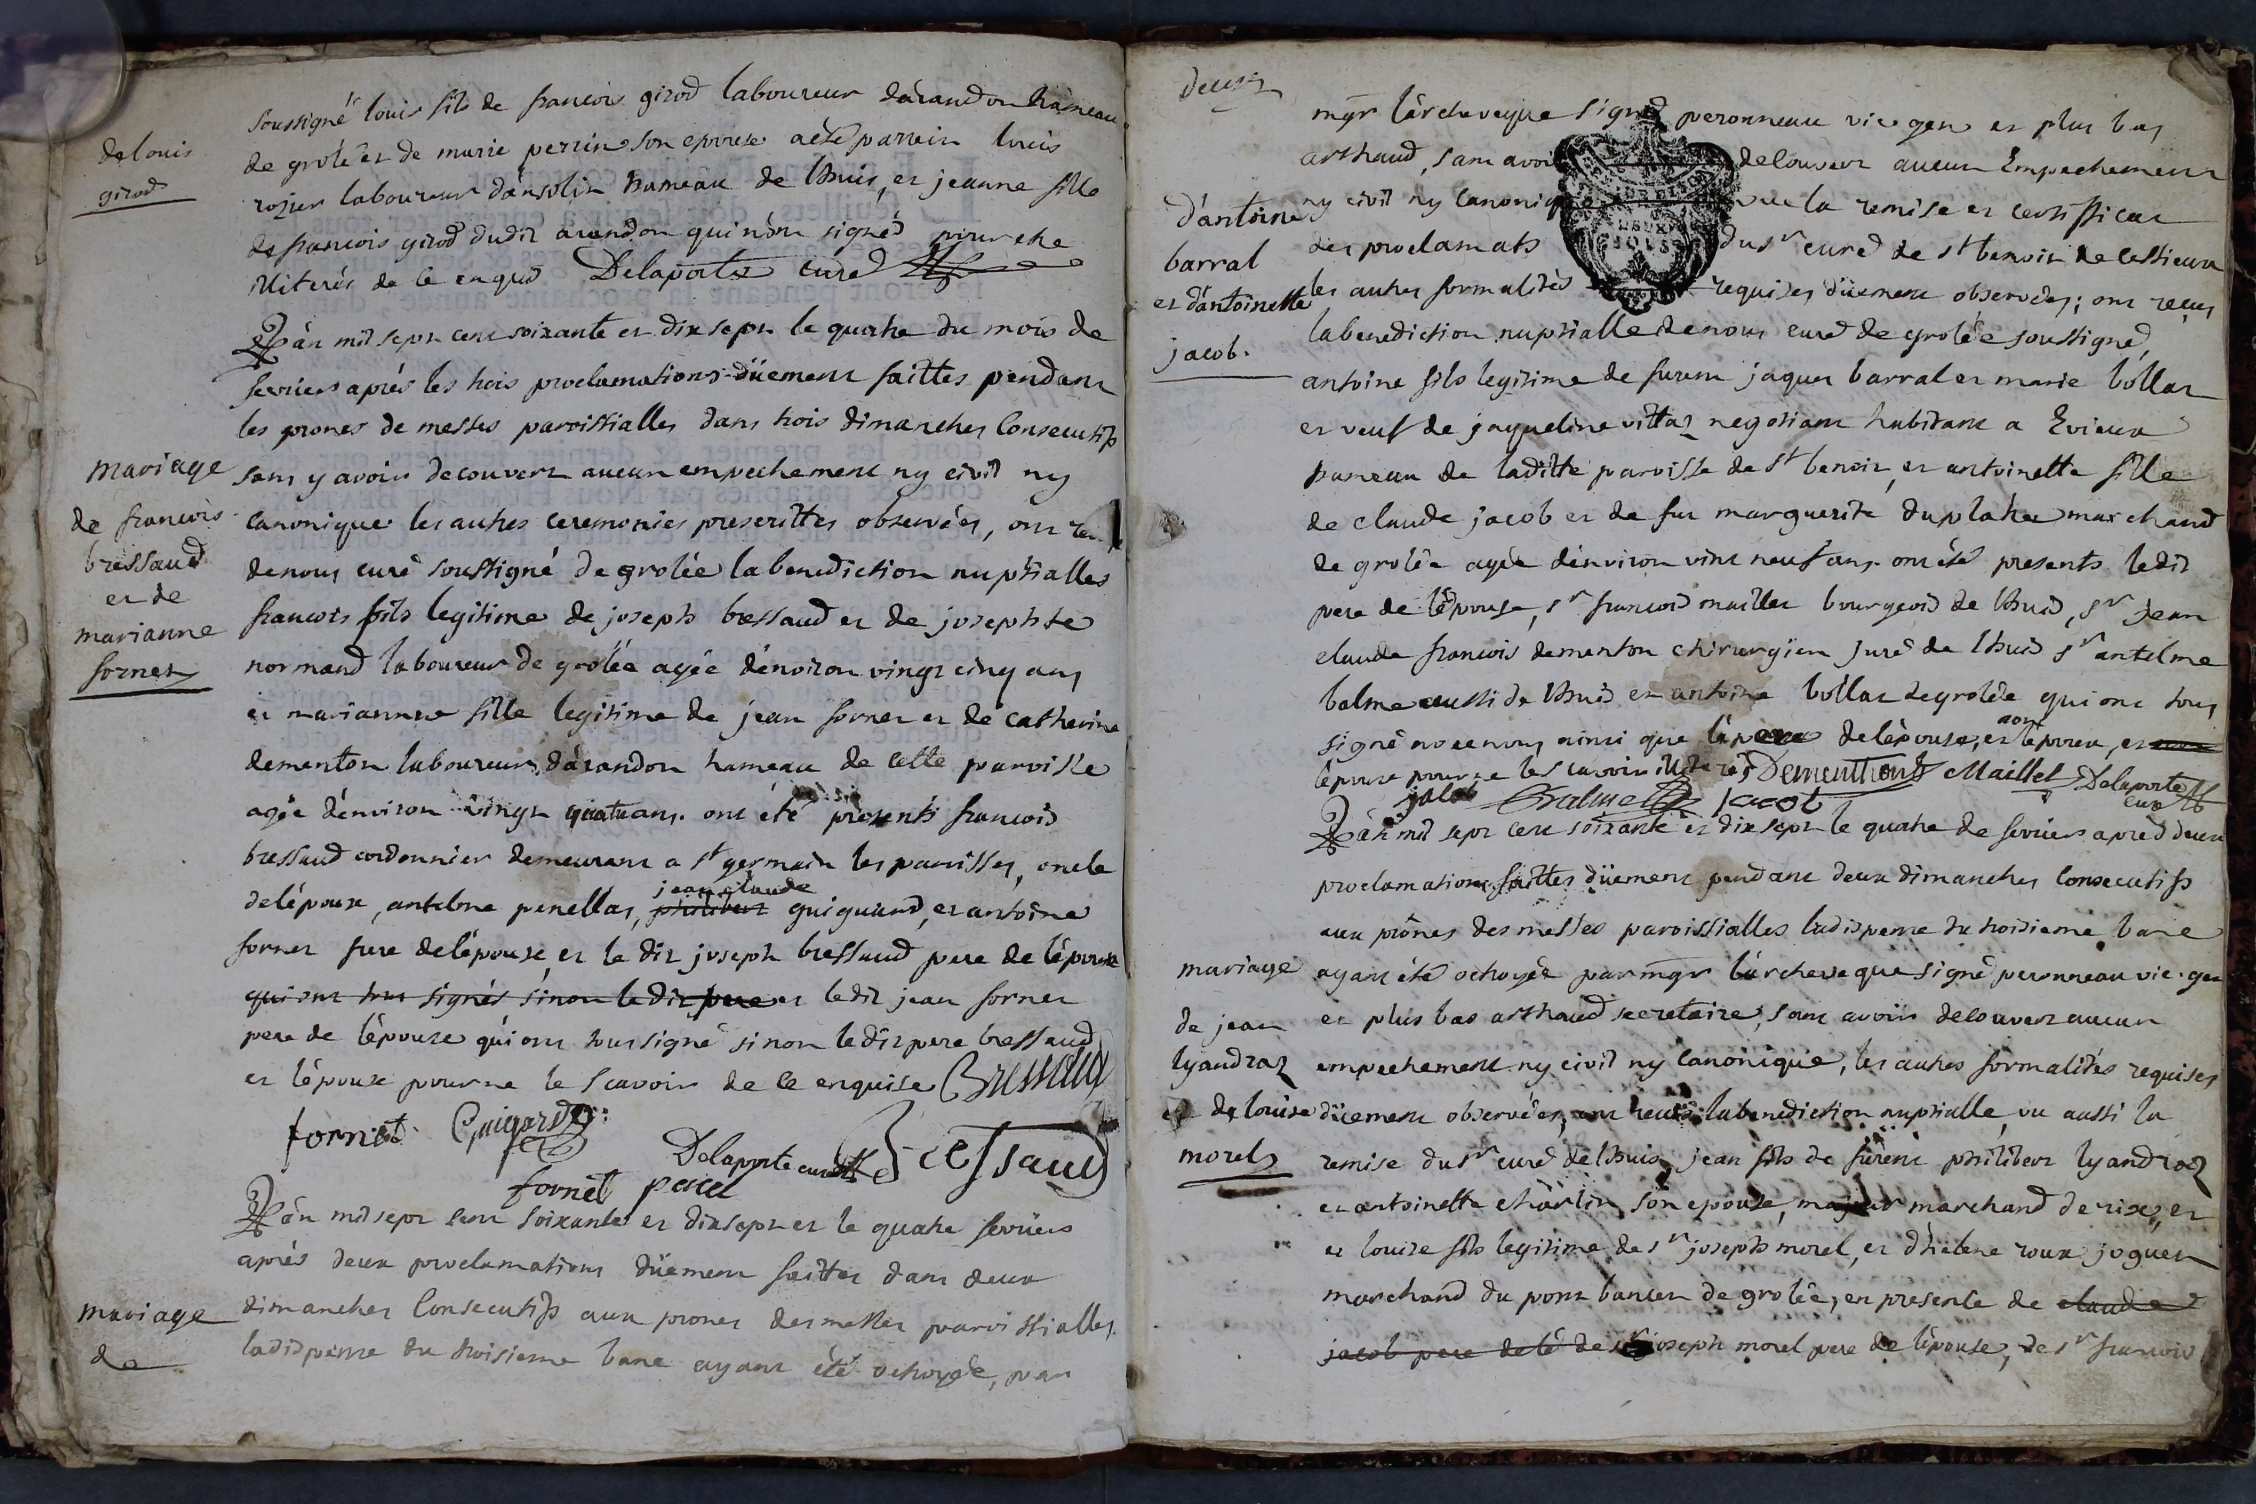 de louis
girod
soussigné louis fils de francois girod laboureur d'arandon hameau
de grolée et de marie perrin son epouse a été parrein louis
rozier laboureur d'ansolin hameau de lhuis, et jeanne fille
de francois girod dudit arandon qui n'on signés pour etre
illiterés de ce enquis Delaporte curé
L'an mil sept cent soixante et dix sept le quatre du mois de
fevrier aprés les trois proclamations düement faittes pendant
les prones de messes paroissialles dans trois dimanches consecutifs
mariage
de francois
bressaud
et de
marianne
fornet
sans y avoir decouvert aucun empechement ny civil ny
canonique les autres ceremonies prescrittes observées, ont
de nous curé soussigné de grolée la benediction nuptialles
francois fils legitime de joseph bressaud et de josephte
normand laboureur de grolée agée d'environ vingt cinq ans
et marianne fille legitime de jean fornet et de catherine
dementon laboureur d'arandon hameau de cette paroisse
agée d'environ vingt quatr ans. ont été presents francois
bressaud cordonnier demeurant a st germain les paroisses, oncle
jean claude
de l'époux, antelme penellas, philibert guiguard, et antoine
fornet frere de l'épouse, et le dit joseph bressaud pere de l'époux
qui ont tous signés sinon le dit pere et ledit jean fornet
pere de l'épouse qui ont tous signé si non le dit pere bressaud
et l'épouse pour ne le scavoir de ce enquise Bressaud
fornet Guigard
Delaporte curé Bressaud
fornet pere
L'an mil sept cent soixante et dix sept et le quatre fevrier
aprés deux proclamations düement faittes dans deux
dimanches consecutifs aux prones des messes paroissialles
mariage
de
la dispense du troisieme banc ayant été octroyée, par
deux
mgr l'archeveque signé peronneau vic gen et plus bas
arthaud, sans avoir decouvert aucun empechement
d'antoine
barral
et d'antoinette
jacob.
ny civil ny canonique vu la remise et certifficat
des proclamats du sr curé de st benoit de cessieux
les autres formalités requises düement observées; ont reçus
la benediction nuptialle de nous curé de grolée soussigné,
antoine fils legitime de jaques barral et marie bollat
et veuf de jaqueline vittaz negotiant habitant a Evieux
hameau de laditte paroisse de st benoit, et antoinette fille
de claude jacob et de fut marguerite duplatre marchand
de grolée agée d'environ vint neuf ans. ont été presents ledit
pere de l'épouse, sr francois maillet bourgeois de lhuis, sr jean
claude francois dementon chirurgien juré de lhuis sr antelme
balme aussi de lhuis et antoine bollat de grolée qui ont tous
signé avec nous ainsi que le pere de l'épouse, et l'époux, et
non
l'épouse pour ne les scavoir Dementhon Maillet Delaporte
curé
jacob Balme jacob
L'an mil sept cent soixante et dix sept le quatre de fevrier aprés deux
proclamations faittes düement pendant deux dimanches consecutifs
aux prônes des messes paroissialles la dispense du troisieme banc
mariage
de jean
lyandraz
et de louise
morel
ayant été octroyée par mgr l'archeveque signé peronneau vic. gen
et plus bas arthaud secretaire, sans avoir decouvert aucun
empechement ny civil ny canonique, les autres formalités requises
düement observées, ont reçus la benediction nuptialle, vu aussi la
remise du sr curé de lhuis, jean fils de philibert lyandraz
et antoinette charlin son epouse, majeur marchand de rix, et
et louise fils legitime de sr joseph morel, et d'helene roux joguet
marchand du port bancet de grolée, en presente de claude
jacob pere de l'é de sr joseph morel pere de l'épouse, de sr francois